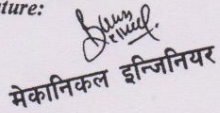 ture:
मेकानिकल इन्जिनियर